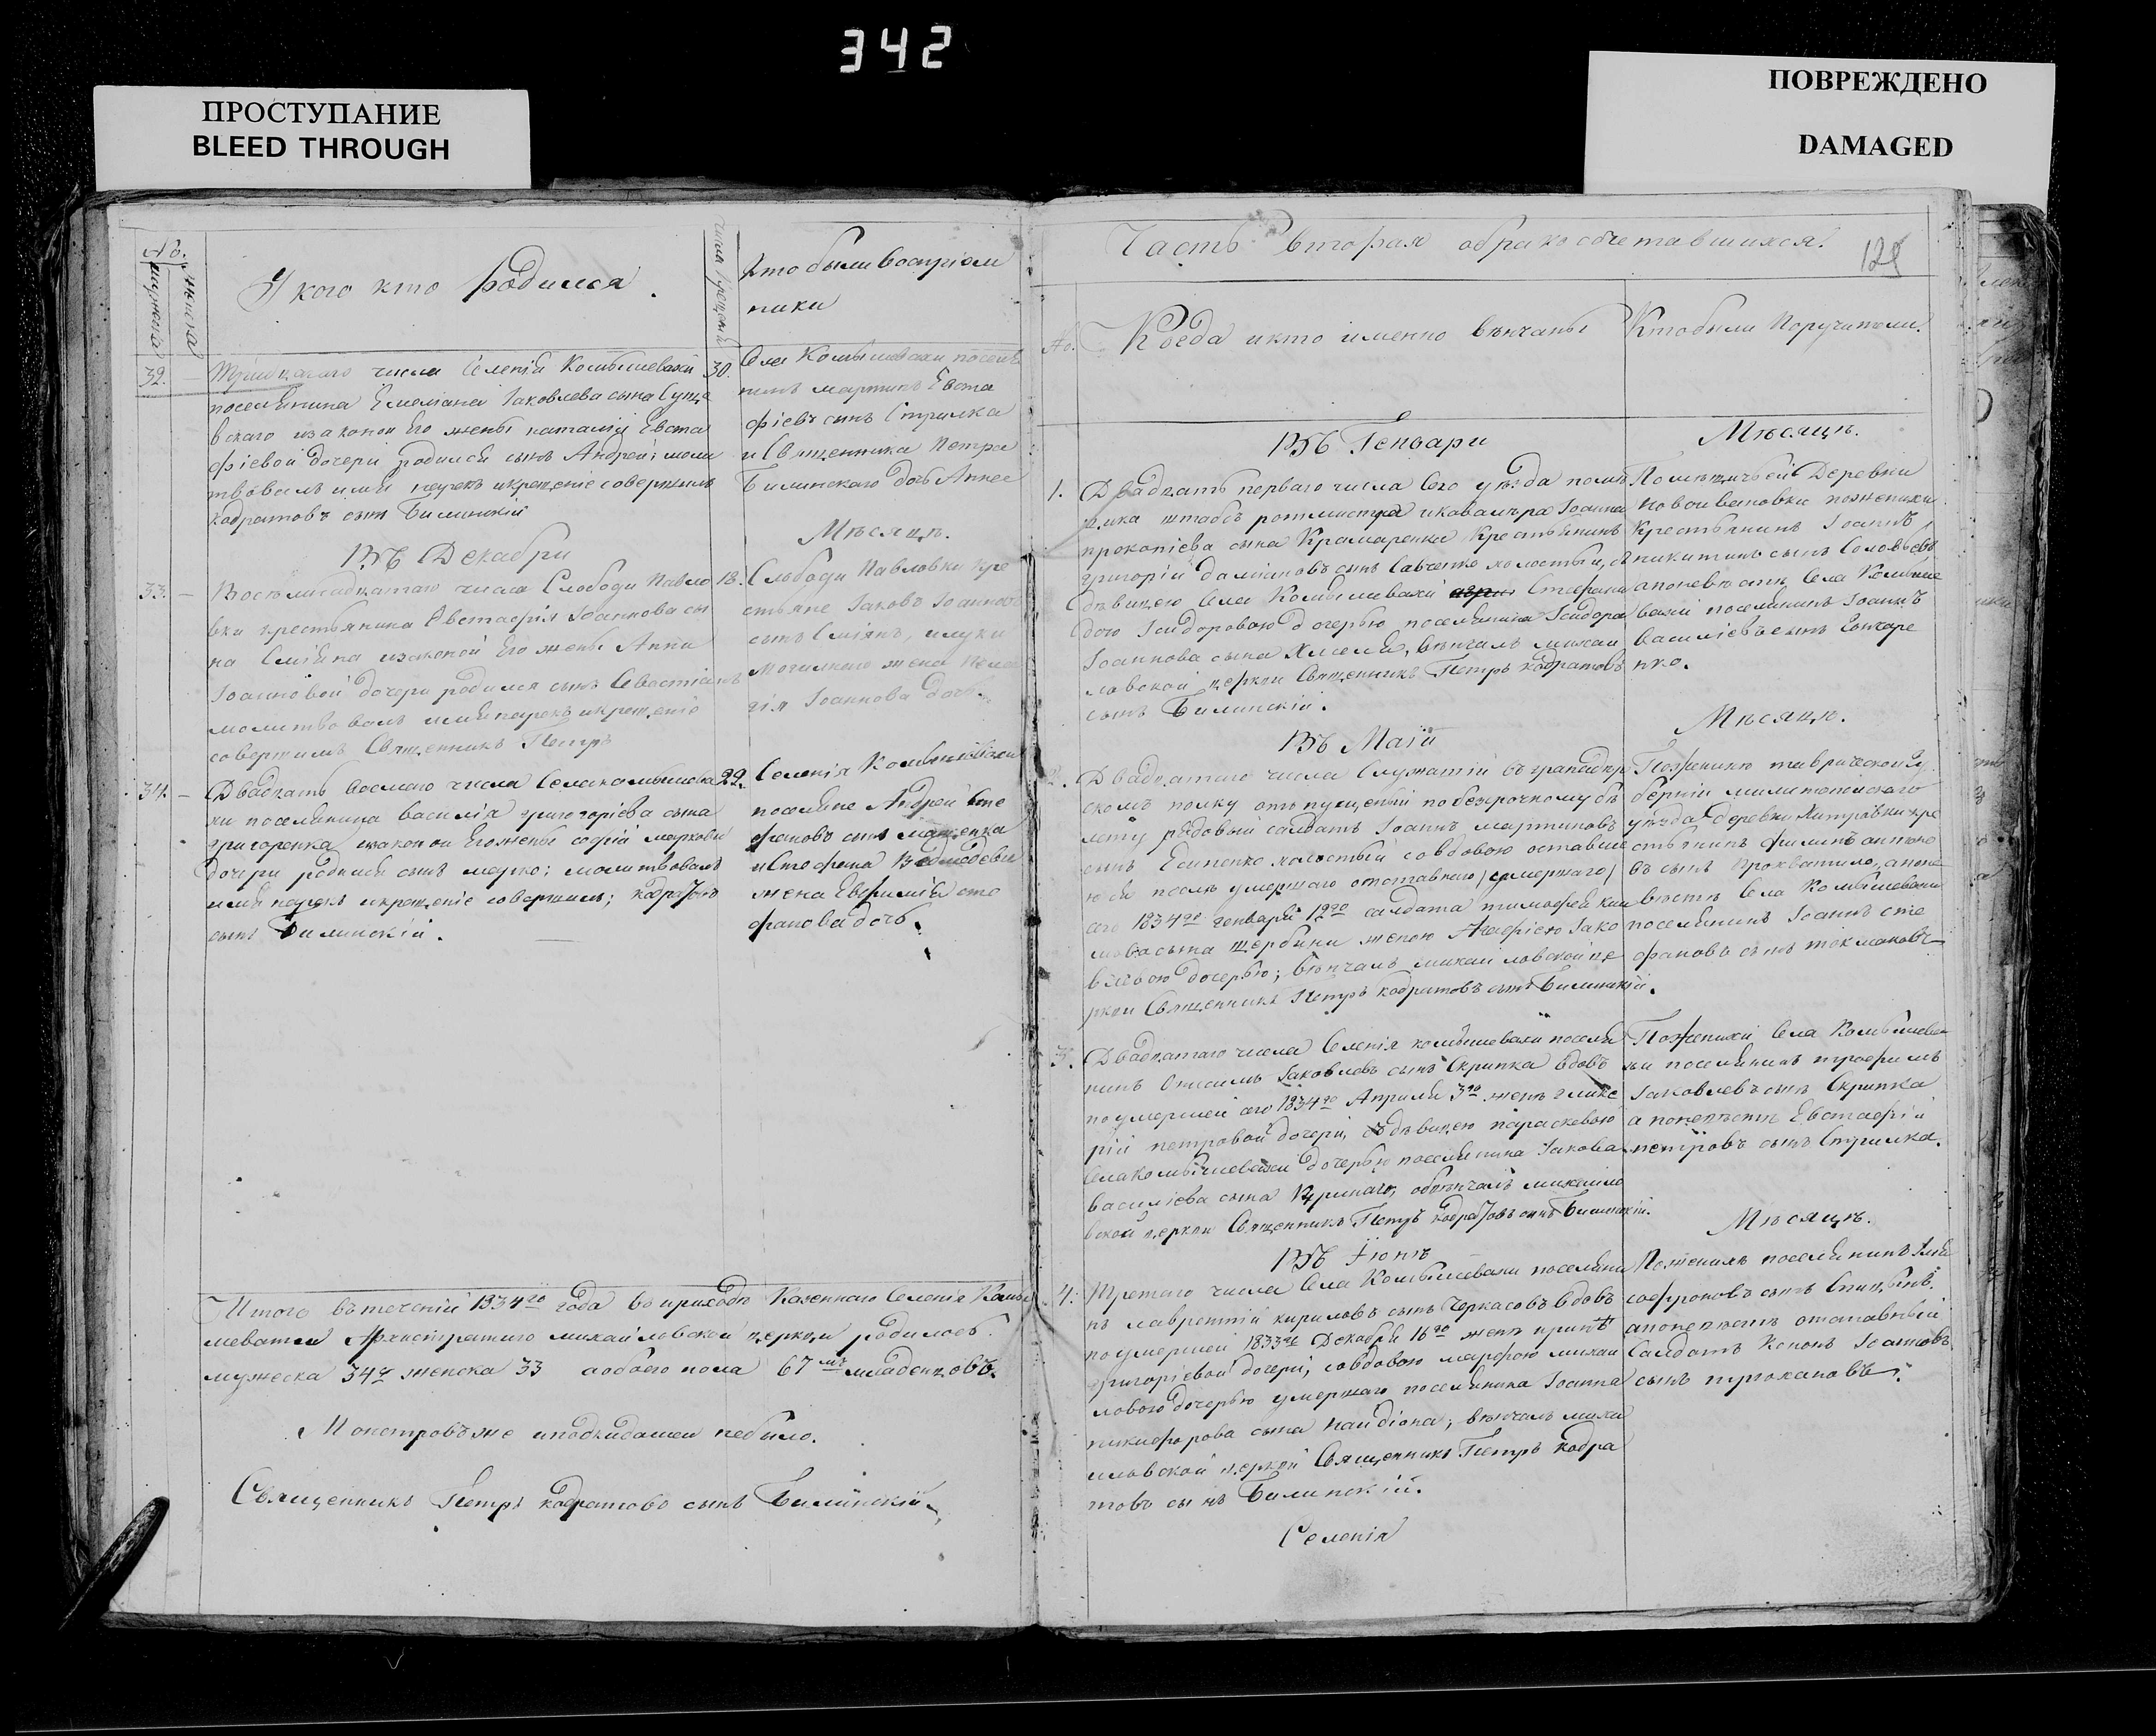 342
ПРОСТУПАНИЕ
BLEED THROUGH
ПОВРЕЖДЕНО
DAMAGED
No.
мужеска
женска
У кого кто родился.
числа крещенія
Кто были воспріем
ники
32. — Тридцатаго числа Селенія Комышевахи 30.
поселянина Емеліана Іаковлева сына
вскаго изаконои Его жены наталіи Евста
фіевой дочери родился сынъ Андрей; моли
твовалъ имя нарекъ икрещеніе совершилъ
кодратовъ сынъ Билинскій
Села Комышевахи поселя
нинъ мартинъ Евста
фіевъ сынъ Стрилка
и Священника Петра
Билинскаго дочь Анна
Въ Декабри
Мѣсяцѣ.
33. — Восѣмнадцатаго числа Слободи Павло 18.
вки крестьянина Евстафія Іоаннова сы
на изаконой Его жены Анны
Іоанновой дочери родился сынъ Севастіанъ
молитвовалъ имя нарекъ икрещеніе
совершилъ Священникъ Петръ
Слободи Павловки кре
стьяне Іаковъ Іоанновъ
сынъ
жена
Іоаннова дочь.
34. — Двадцать восмаго числа Села комышева 29.
хи поселянина василія григоріева сына
григоренка изаконои Егожены софіи маркови
дочери родился сынъ марко; молитвовалъ
имя нарекъ икрещеніе совершилъ; кодратовъ
сынъ Билинскій.
Селенія Комышевахи
поселяне Андрей Сте
фановъ сынъ
и Стефана
жена Евфимія сте
фанова дочь.
Итого втеченіи 1834го года вприходѣ Казеннаго Селенія Комы
шевахи Архистратиго михайловской церкви родилось
мужеска 34ри женска 33 аобоего пола 67мъ младенцовъ.
Монстровъ же иподкидишеи небыло.
Священникъ Петръ кодратовъ сынъ Билинскій
Часть вторая обракосочетавшихся.
No.
Когда икто именно вѣнчаны
Ктобыли Поручители.
Въ Генвари
Мѣсяцѣ.
1. Двадцать перваго числа Сего уѣзда помѣ
щика штабсъ ротмистра икавалѣра Іоанна
прокопіева сына Крамаренки Крестьянинъ
григорій даміановъ сынъ Савченко холостый, съ
дѣвицею Села Комышевахи Стефани
дою Ісидоровою дочерью поселянина Ісидора
Іоаннова сына Хмеля, вѣнчалъ михаи
ловской церкви Священникъ Петръ кодратовъ
сынъ Билинскій.
Помѣщичьей Деревни
Новоивановки поженихи
Крестьянинъ Іоаннъ
никитинъ сынъ Соловьевъ
апоневѣстѣ Села Комыше
вахи поселянинъ Іоаннъ
василіевъ сынъ Гончаре
нко.
Въ Маіи
Мѣсяцѣ.
2. Двадцатаго числа Служащій въ гранадир
скомъ полку отпущеный побезсрочному би
лету рядовый салдатъ Іоаннъ мартиновъ
сынъ Единенко холостый совдовою оставше
юся послѣ умершаго отставнаго (умершаго)
сего 1834го генваря салдата тимофея
сына щербини женою Агафіею Іако
влевою дочерью; вѣнчалъ михаиловской це
ркви Священникъ Петръ кодратовъ сынъ Билинскій.
Поженихи таврической гу
берніи милитопольскаго
уѣзда деревни Хитровки кре
стьянинъ
въ сынъ апоне
вѣстѣ Села Комышевахи
поселянинъ Іоаннъ сте
фановъ сынъ токмаковъ
3. Двадцатаго числа Селенія комышевахи поселя
нинъ Онисимъ Іаковлевъ сынъ Скрипка вдовъ
поумершей сего 1834го Априля 3го женѣ глике
ріи петровой дочери, съ дѣвицею параскевою
Села комышевахи дочерью поселянина Іакова
василіева сына обвѣнчалъ михаило
вской церкви Священникъ Петръ кодратовъ сынъ Билинскій.
Поженихи Села Комышева
хи поселянинъ трофимъ
Іаковлевъ сынъ Скрипка
а поневѣстѣ Евстафій
петровъ сынъ Стрилка.
Въ Іюнѣ
Мѣсяцѣ.
4. Третяго числа Села Комышевахи поселяни
нъ лаврентій кириловъ сынъ Черкасовъ вдовъ
поумершей 1833го Декабря 16го женѣ
григоріевой дочери, совдовою марфою михаи
ловою дочерью умершаго поселянина Іоанна
никифорова сына вѣнчалъ миха
иловской церкви Священникъ Петръ кодра
товъ сынъ Билинскій.
Поженихѣ поселянинъ Илія
софроновъ сынъ
апоневѣстѣ отставный
Салдатъ Кононъ Іоанновъ
сынъ
Селенія